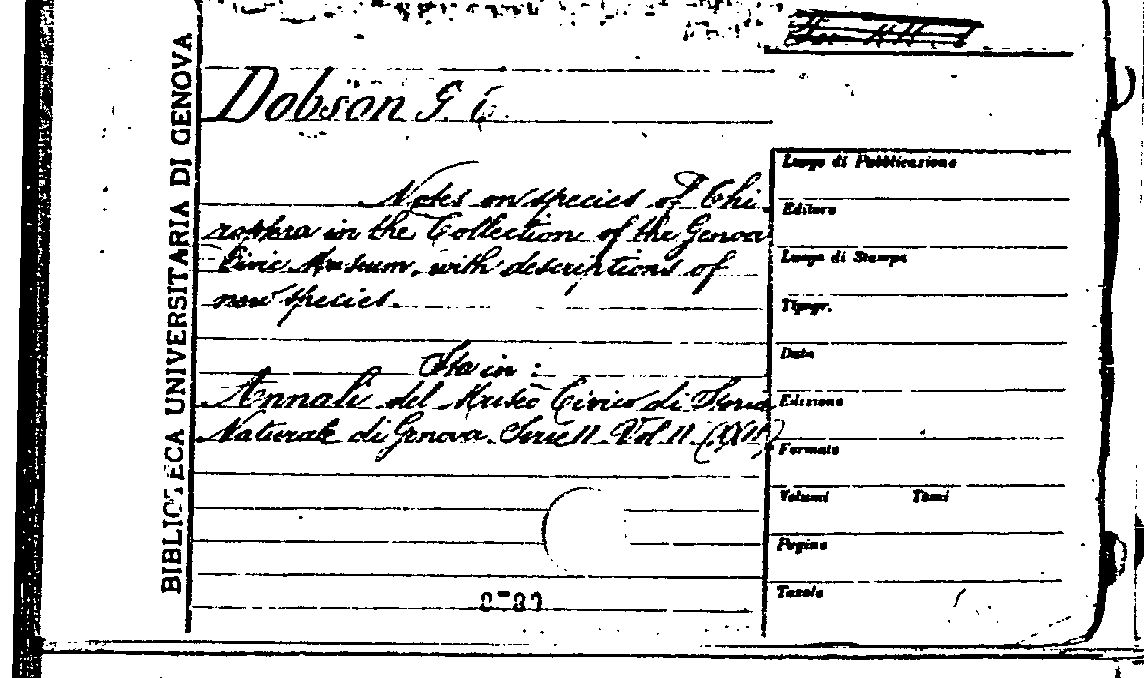 BIBLIOTECA UNIVERSITARIA DI GENOVA
Dobson G. E.
Notes on species of Chi
roptera in the Collection of the Genoa
Civic Museum, with descriptions of
new species.
Sta in:
Annali del Museo Civico di Storia
Naturale di Genova. Serie II Vol. II (XXII)
Luogo di Pubblicazione
Editore
Luogo di Stampa
Tipogr.
Data
Edizione
Formato
Volumi Tomi
Pagine
Tavole